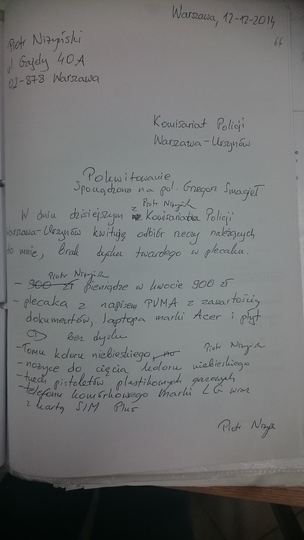 Warszawa, 12-12-2014
66
Piotr Niżyński
ul Gajdy 40A
02-878 Warszawa
Komisariat Policji
Warszawa-Ursynów
Pokwitowanie
Sporządzono na pol. Grzegorz
Piotr Niżyński
W dniu dzisiejszym z Komisariatu Policji
Warszawa-Ursynów kwituję odbiór rzeczy należących
do mnie, Brak dysku twardego w plecaku.
Piotr Niżyński
- 900 zł pieniądze w kwocie 900 zł
- plecaka z napisem PUMA z zawartością
dokumentów, laptopa marki Acer i płyt
CD bez dysku
- Łomu koloru niebieskiego, no Piotr Niżyński
- nożyce do cięcia koloru niebieskiego
- trzech pistoletów plastikowych gazowych
- telefonu komórkowego marki LG wraz
z kartą SIM Plus
Piotr Niżyński